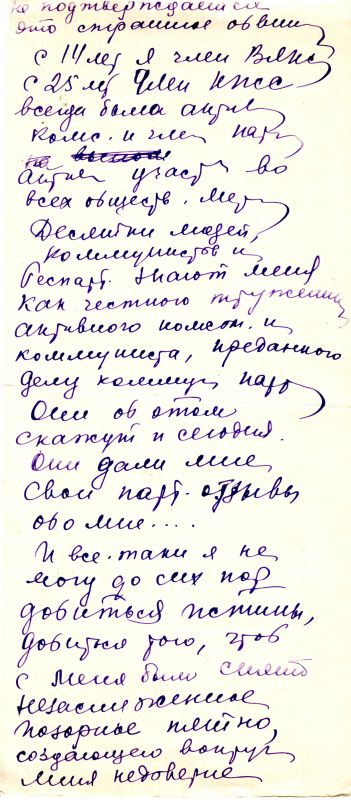 не подтверждается
это страшное обвин
С 14 лет я член ВЛКС
С 25 лет Член КПСС
всегда была актив
комс. и член парт
Актив участ во
всех обществ. мер
Десятки людей,
коммунистов и
беспарт. знают меня
как честного труженик
активного комсом. и
коммуниста, преданного
делу коммун парт
Они об этом
скажут и сегодня.
Они дали мне
свои парт. отзывы
обо мне....
И все-таки я не
могу до сих пор
добиться истины,
добиться того, чтоб
с меня было снято
незаслуженное
позорное пятно,
создающего вокруг
меня недоверие